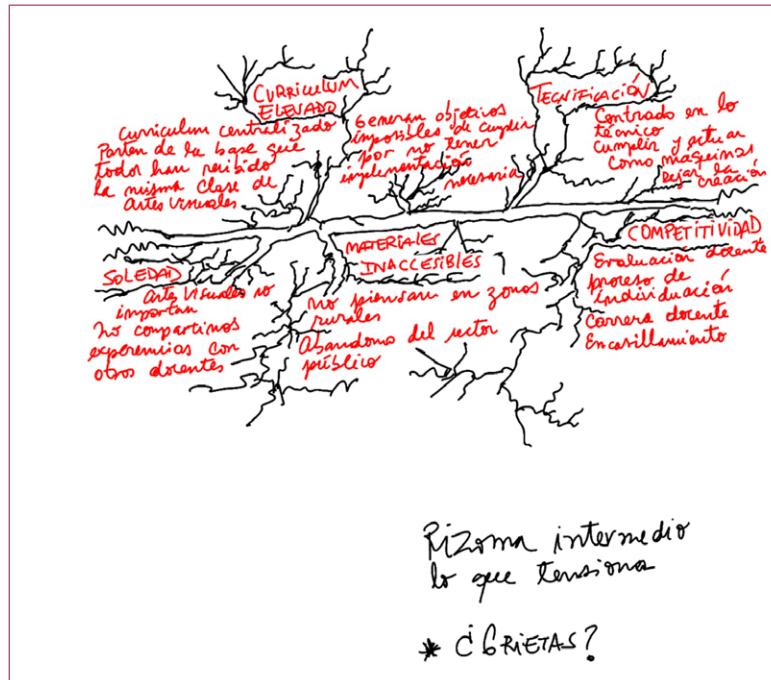 CURRICULUM
ELEVADO
Curriculum centralizado
Parten de la base que
todos han recibido
la misma clase de
Artes visuales
Generan objetivos
imposibles de cumplir
por no tener
implementación
necesaria
TECNIFICACIÓN
Centrado en lo
técnico
cumplir y actuar
como máquinas
dejar la
creación
SOLEDAD
Artes visuales no
importan
no compartimos
experiencias con
otros docentes
MATERIALES
INACCESIBLES
no piensan en zonas
rurales
Abandono del sector
público
COMPETITIVIDAD
Evaluación docente
proceso de
individuación
Carrera docente
Encasillamiento
Rizoma intermedio
lo que tensiona
* ¿GRIETAS?